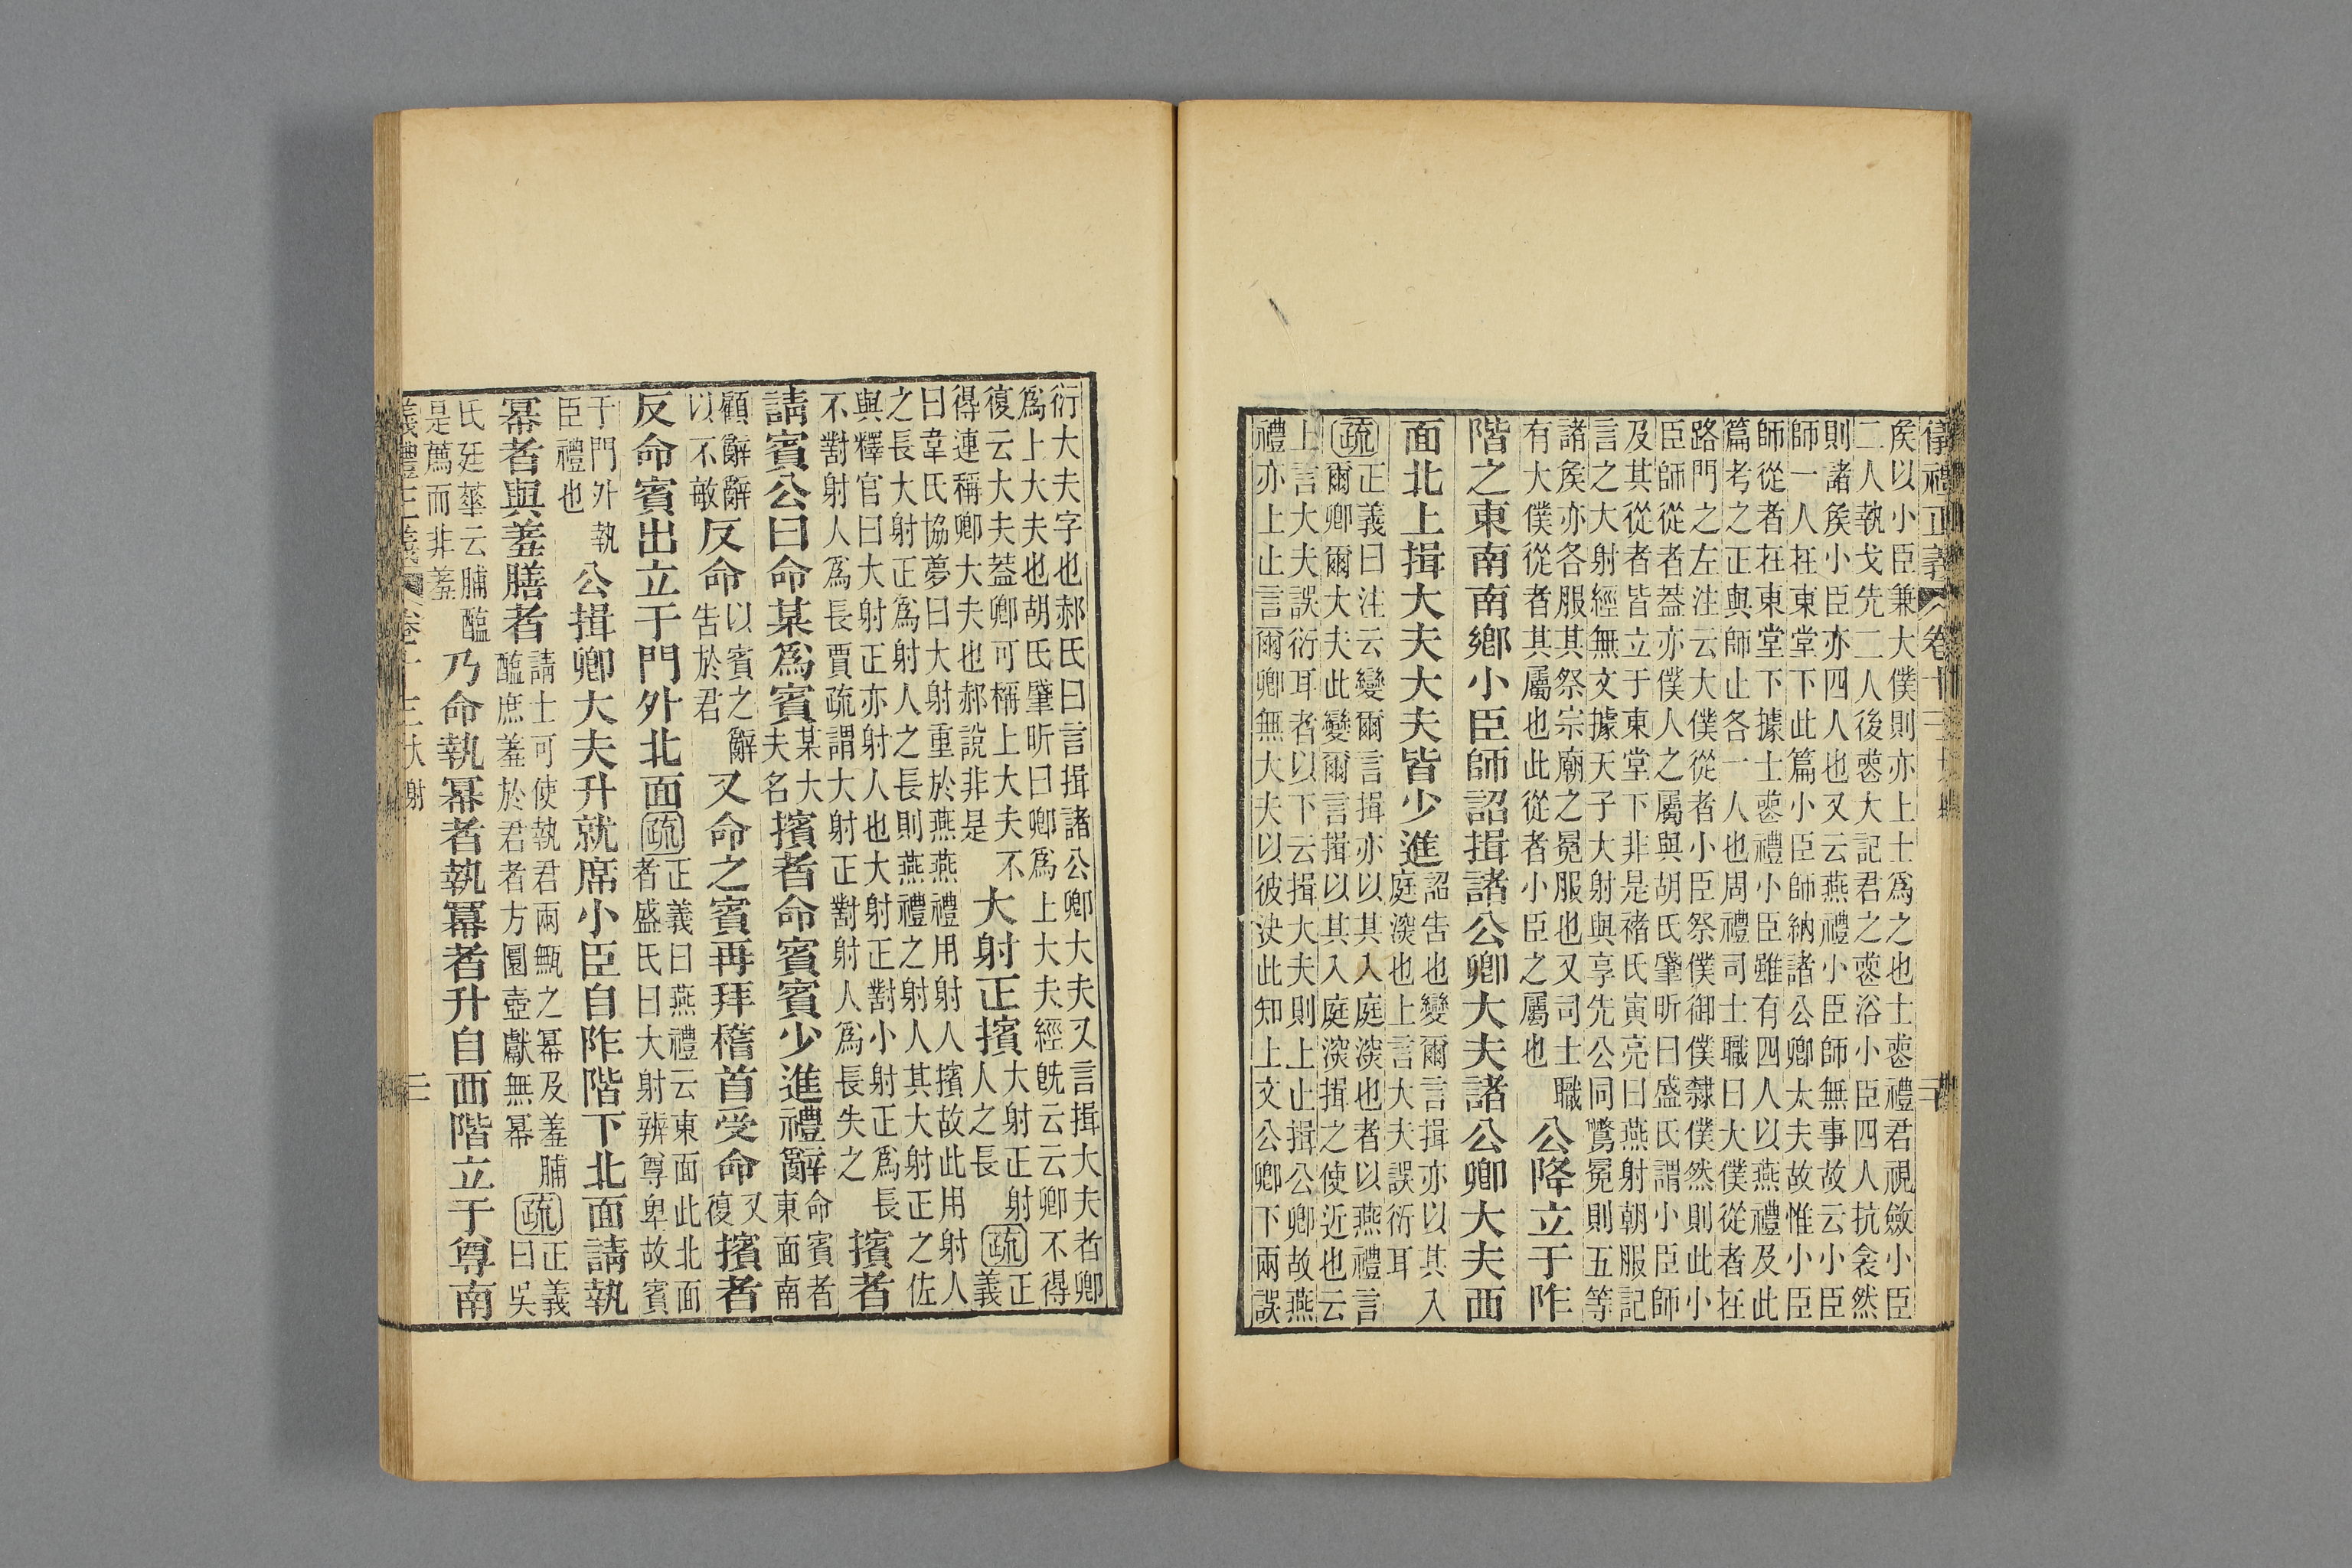 儀禮正義 卷十三 大射 二
矦以小臣兼大僕則亦上士爲之也士喪禮君視斂小臣
二人執戈先二人後喪大記君之喪浴小臣四人抗衾然
則諸矦小臣亦四人也又云燕禮小臣師無事故云小臣
師一人在東堂下此篇小臣師納諸公卿大夫故惟小臣
師從者在東堂下據士喪禮小臣雖有四人以燕禮及此
篇考之正與師止各一人也周禮司士職曰大僕從者在
路門之左注云大僕從者小臣祭僕御僕隸僕然則此小
臣師從者蓋亦僕人之屬與胡氏肇昕曰盛氏謂小臣師
及其從者皆立于東堂下非是褚氏寅亮曰燕射朝服記
言之大射經無文據天子大射與享先公同鷩冕則五等
諸矦亦各服其祭宗廟之冕服也又司士職
有大僕從者其屬也此從者小臣之屬也
公降立于阼
階之東南南鄉小臣師詔揖諸公卿大夫諸公卿大夫西
面北上揖大夫大夫皆少進
詔告也變爾言揖亦以其入
庭深也上言大夫誤衍耳
疏
正義曰注云變爾言揖亦以其入庭深也者以燕禮言
爾卿爾大夫此變爾言揖以其入庭深揖之使近也云
上言大夫誤衍耳者以下云揖大夫則上止揖公卿故燕
禮亦上止言爾卿無大夫以彼決此知上文公卿下兩誤
衍大夫字也郝氏曰言揖諸公卿大夫又言揖大夫者卿
爲上大夫也胡氏肇昕曰卿爲上大夫經旣云云卿不得
復云大夫蓋卿可稱上大夫不
得連稱卿大夫也郝說非是
大射正擯
大射正射
人之長
疏
正
義
曰韋氏協夢曰大射重於燕燕禮用射人擯故此用射人
之長大射正爲射人之長則燕禮之射人其大射正之佐
與釋官曰大射正亦射人也大射正對小射正爲長
不對射人爲長賈疏謂大射正對射人爲長失之
擯者
請賓公曰命某爲賓
某大
夫名
擯者命賓賓少進禮辭
命賓者
東面南
顧辭辭
以不敏
反命
以賓之辭
告於君
又命之賓再拜稽首受命
又
復
擯者
反命賓出立于門外北面
疏
正義曰燕禮云東面此北面
者盛氏曰大射辨尊卑故賓
于門外執
臣禮也
公揖卿大夫升就席小臣自阼階下北面請執
冪者與羞膳者
請士可使執君兩甒之冪及羞脯
醢庶羞於君者方圜壺獻無冪
疏
正義
曰吳
氏廷華云脯醢
是薦而非羞
乃命執冪者執冪者升自西階立于尊南
儀禮正義 卷十三 大射 二